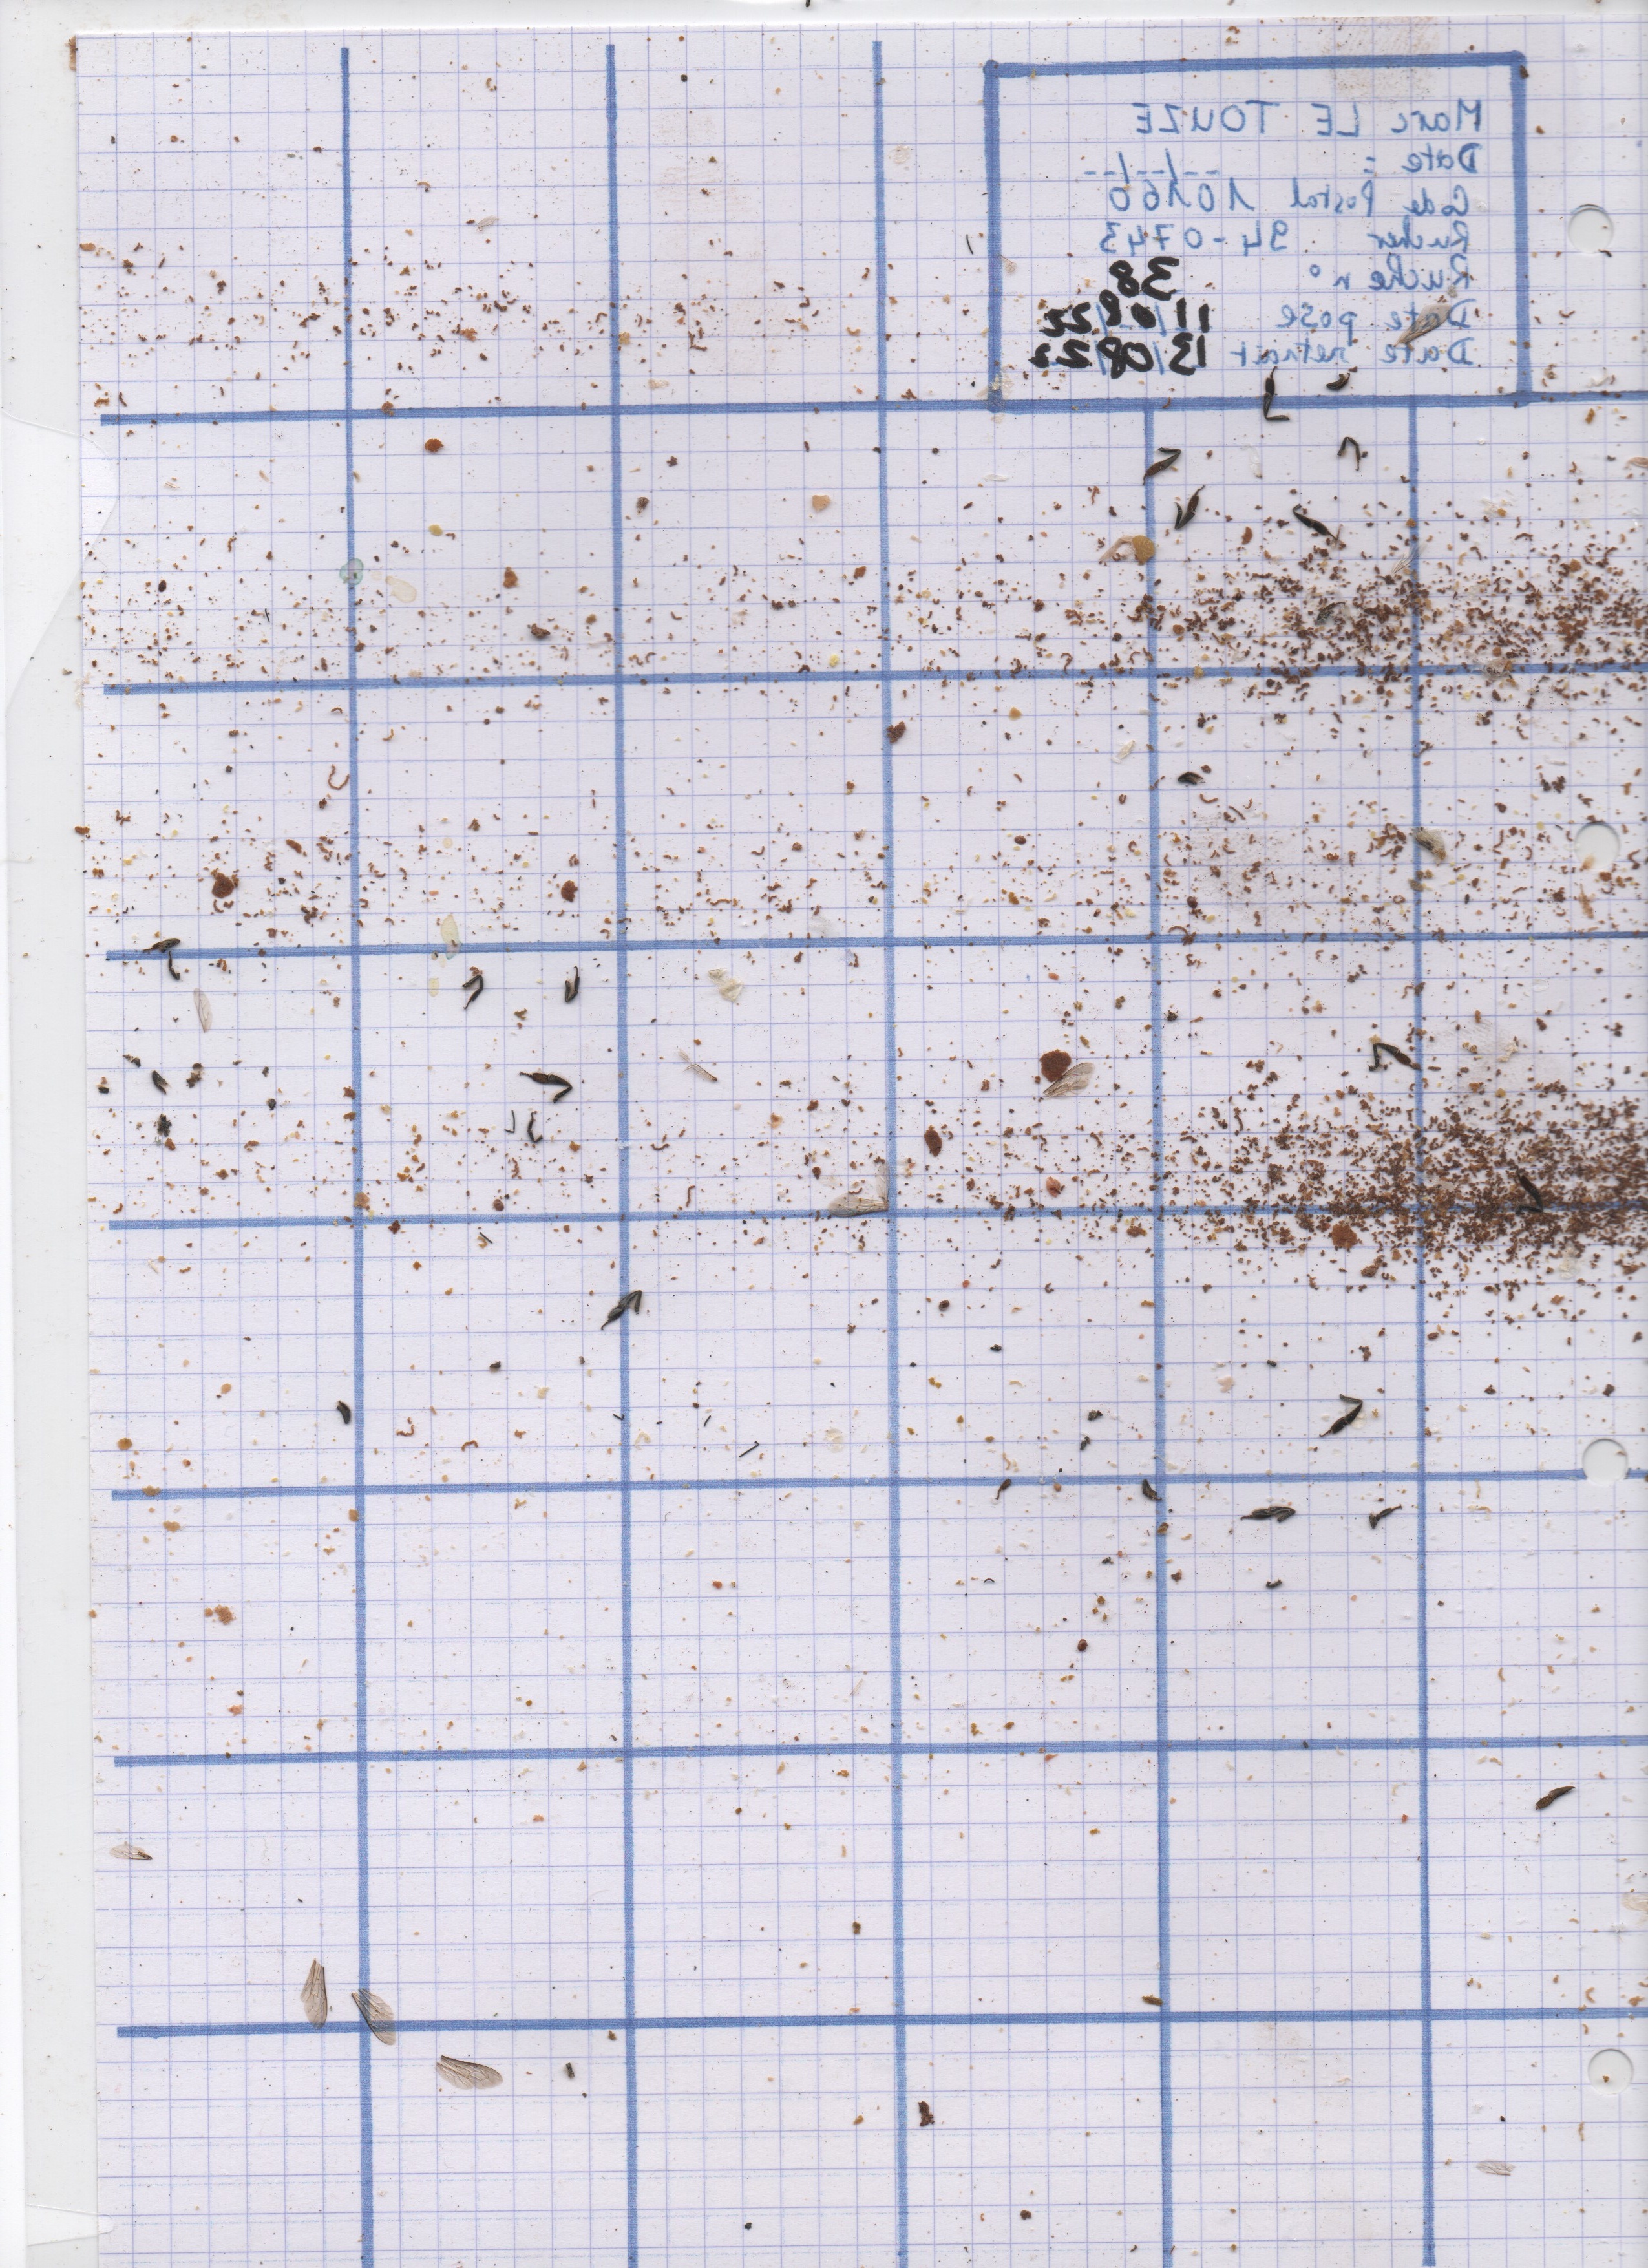 Marc LE TOUZE
Date : --/--/--
Code Postal 10160
Rucher 94-0743
Ruche n° 38
Date pose 11/08/22
Date retrait 13/08/22